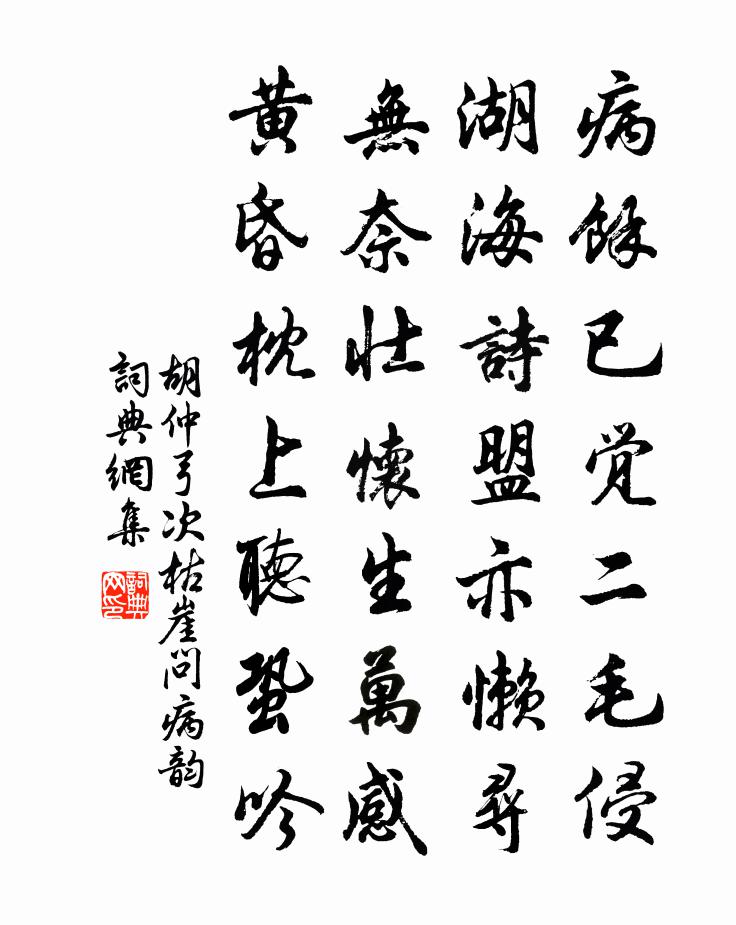 病餘已觉二毛侵
湖海詩盟亦懒尋
無奈壮懷生萬感
黄昏枕上聽蛩吟
胡仲弓次枯崖问病韵
詞典網集
詞典网印